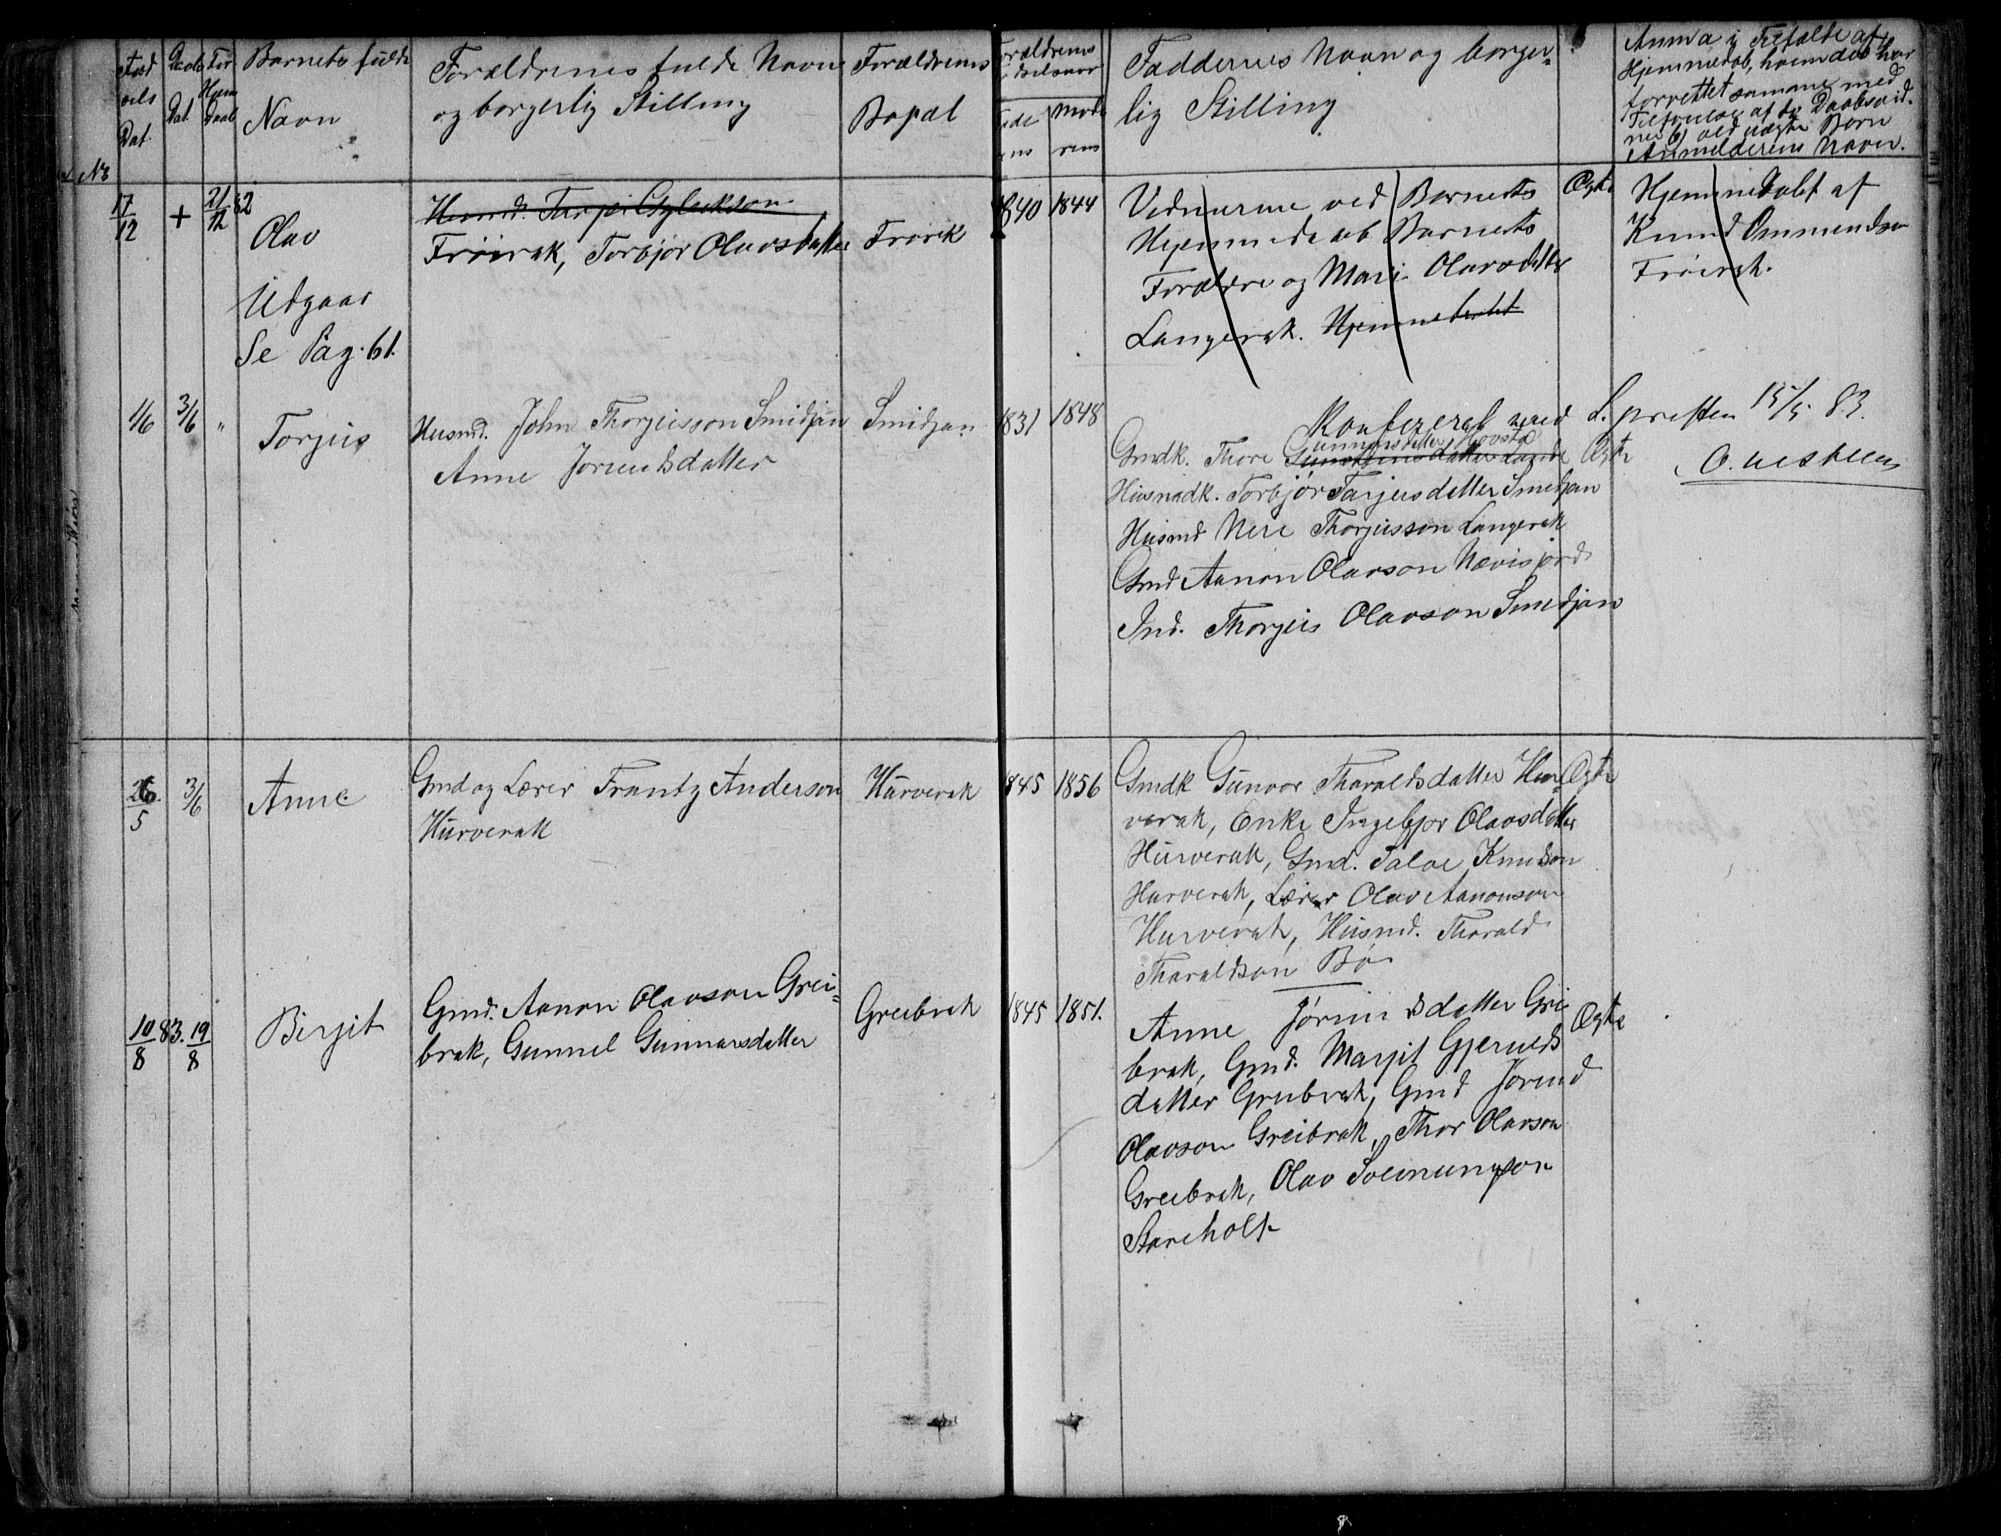 Barnets fulde
Navn
Forældrenes fulde Navn
og borgerlig Stilling
Forældrenes
Bopæl
Forældrenes
Faddernes Navn og borger=
lig Stilling
Anm a, i Tilfælde af
Hjemmedaab, hvem der har
forrettet samme med
Daabsvid-
Anmelderens Navn.
No
17/12 + 21/12 82
Olav
Udgaar
Se Pag. 61.
Frøirak, Torbjør Olavsdatter
Frøirk
1840 1844
Vidnerne ved Barnets
Hjemmedaab Barnets
Forældre og Mari Olavsdatter
Langerak. Hjemmedøbt
Ægte
Hjemmedøbt af
Knud Ommundsen
Frøirak.
1/6 3/6 "
Torgius
Husmd. John Thorgiusson Smidjan
Anne Jorundsdatter
Smidjan
1831 1848
Konfereret med S. presten 15/5 83.
Gmdk. Thore
Gunnarsdatter Hovstad
Ægte
Husmdk. Torbjør Tarjeisdatter Smedjan
Husmd Neri Thorgiusson Langerak
Gmd Aanon Olavson Nævisjord
Ind. Thorgius Olavson Smedjan
26/5 3/6
Anne
Gmd og Lærer Frantz Anderson
Hurverak
Hurverak
1845 1856
Gmdk Gunvor Tharaldsdatter Hur=
verak, Enke Ingebjør Olavsdatter
Hurverak, Gmd. Salve Knudson
Hurverak, Lærer Olav Aanonson
Hurverak, Husmd. Tharald
Tharaldson Bø
Ægte
10/8 83. 19/8
Birgit
Gmd. Aanon Olavson Grei=
brak, Gunnel Gunnarsdatter
Greibrak
1845 1851.
Anne Jørundsdatter Grei
brak, Gmd. Margit Gjerulds
datter Greibrak, Gmd Jørund
Olavson Greibrak, Thor Olavson
Greibrak, Olav Sveinungson
Stareholt
Ægte